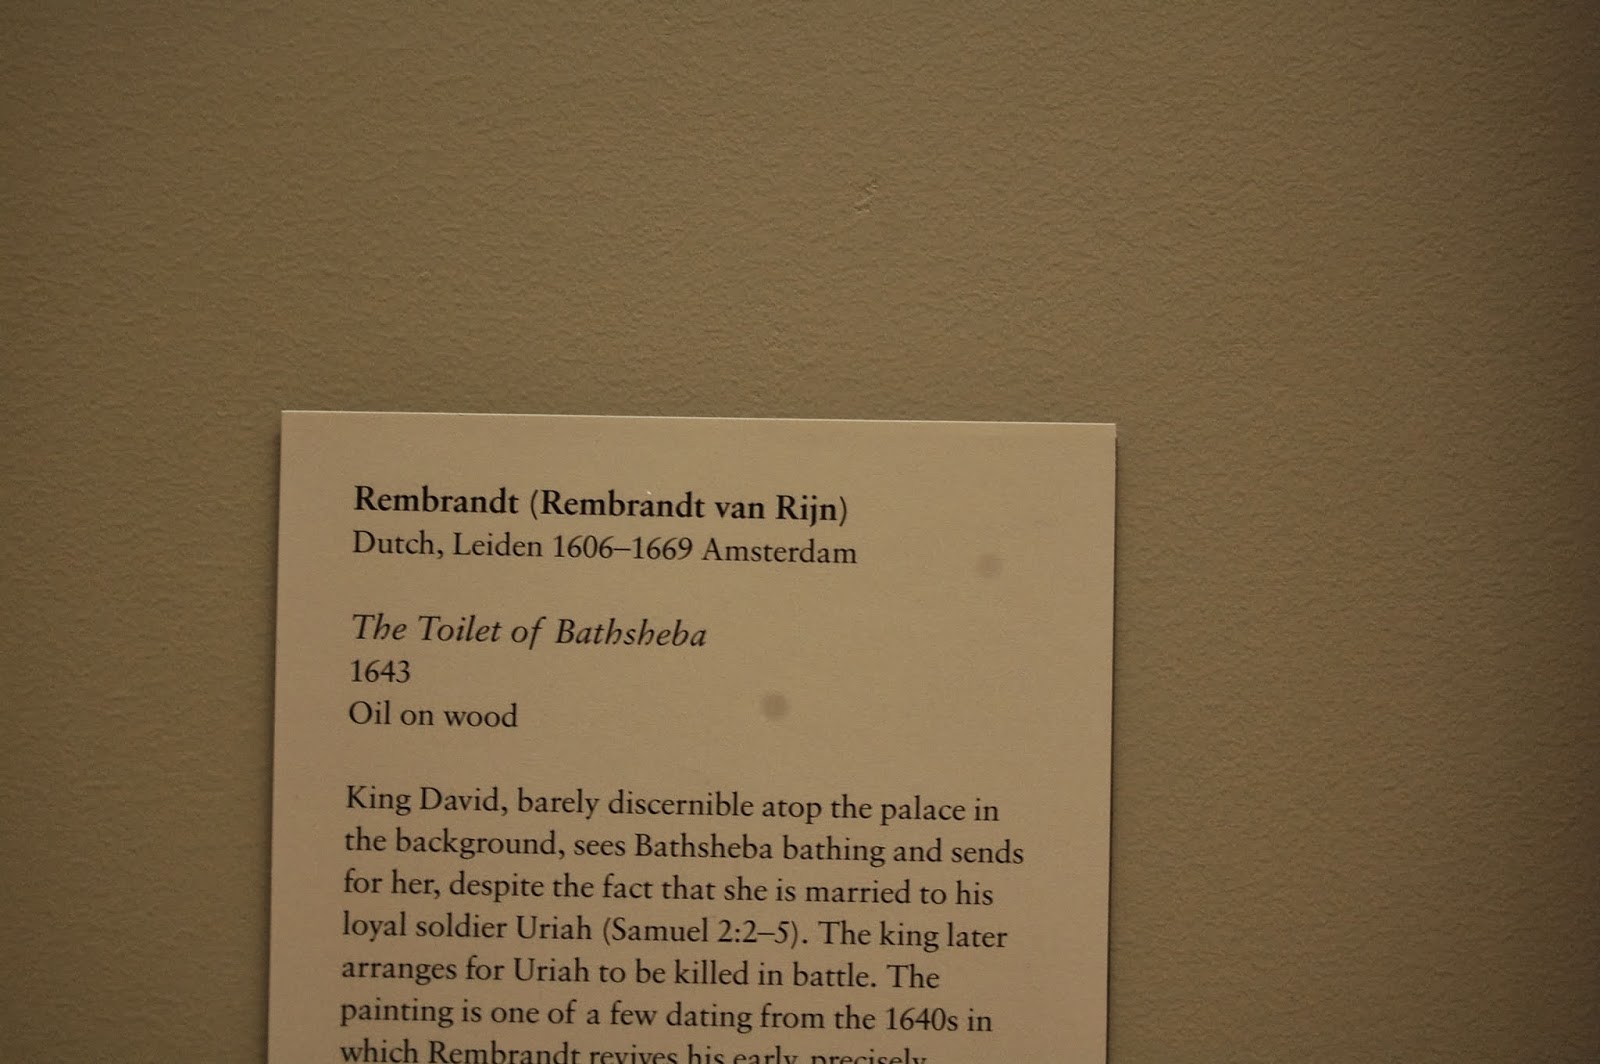 Rembrandt (Rembrandt van Rijn)
Dutch, Leiden 1606–1669 Amsterdam
The Toilet of Bathsheba
1643
Oil on wood
King David, barely discernible atop the palace in
the background, sees Bathsheba bathing and sends
for her, despite the fact that she is married to his
loyal soldier Uriah (Samuel 2:2–5). The king later
arranges for Uriah to be killed in battle. The
painting is one of a few dating from the 1640s in
which Rembrandt revives his early, precisely